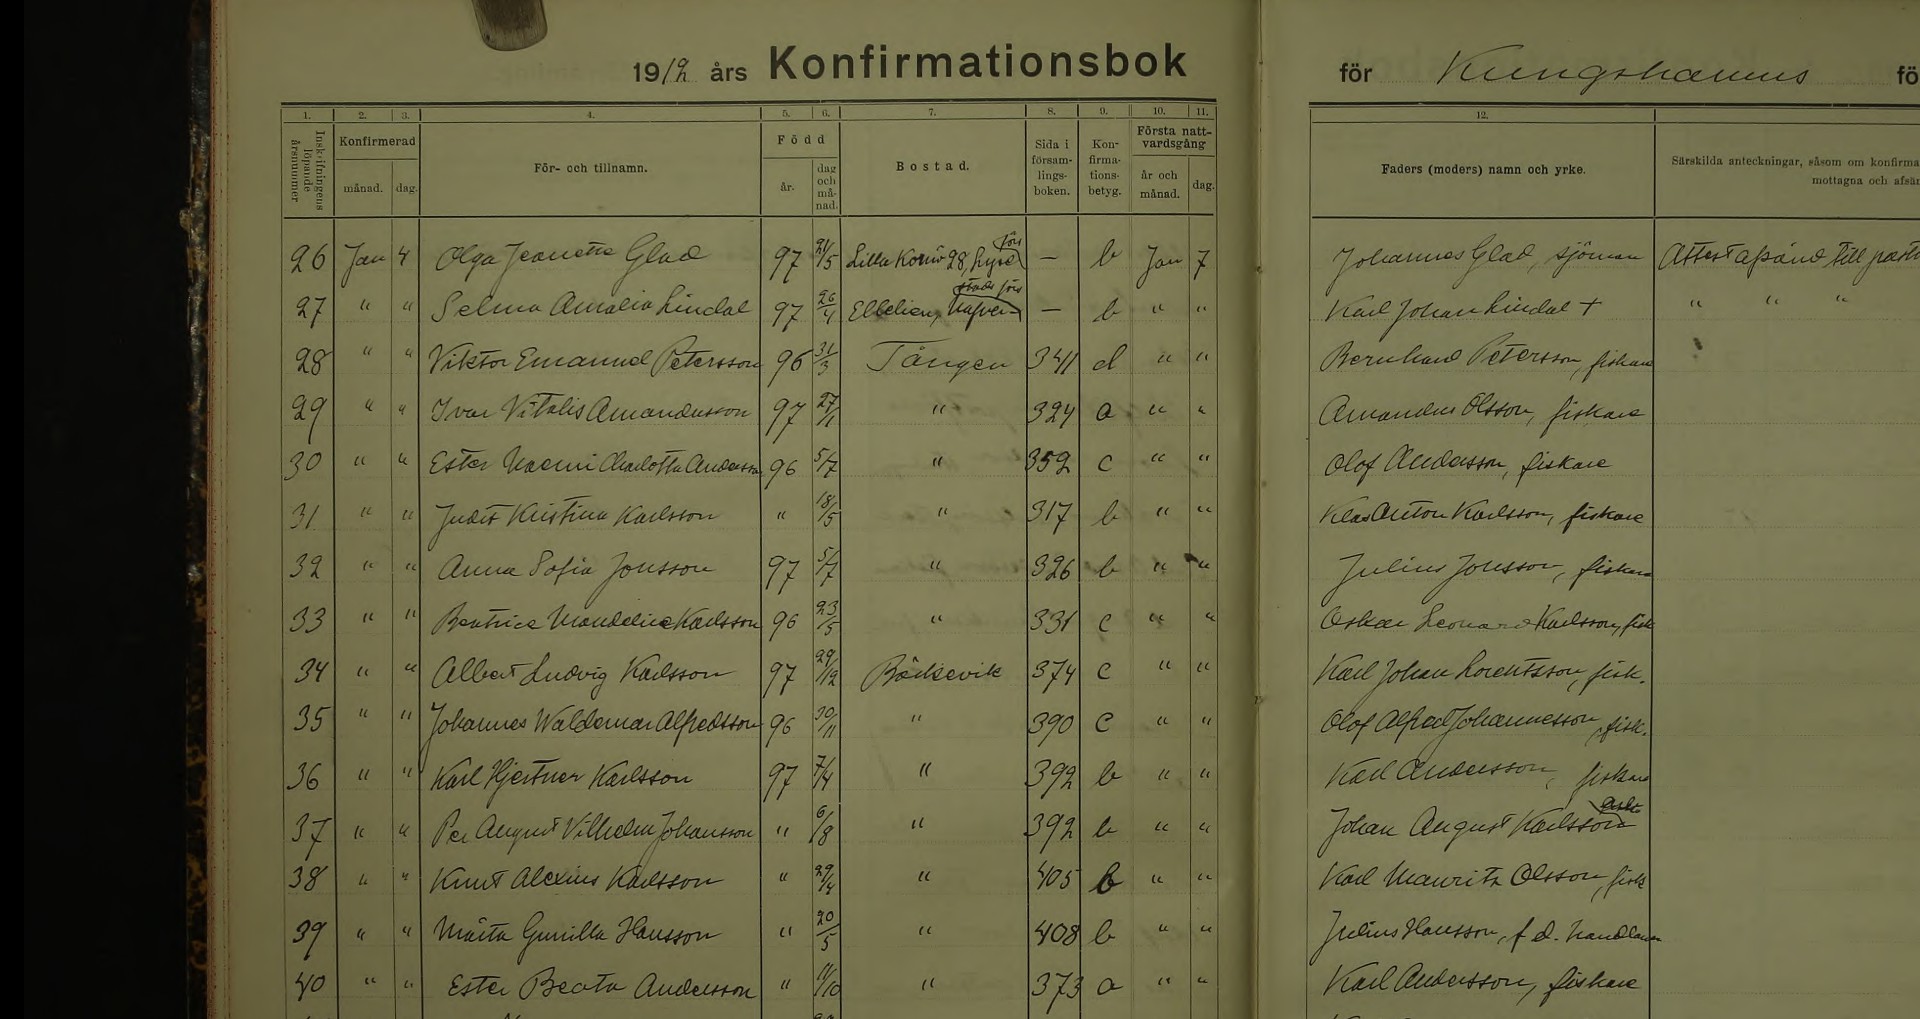 1912 års Konfirmationsbok för Kungshamns fö
1. 2. 3. 4. 5. 6. 7. 8. 9. 10. 11. 12.
Inskrifningens löpande årsnummer
Konfirmerad
månad. dag.
För- och tillnamn.
Född
år. dag och må- nad.
Bostad.
Sida i försam- lings- boken.
Kon- firma- tions- betyg.
Första natt- vardsgång
år och månad. dag.
Faders (moders) namn och yrke.
Särskilda anteckningar, såsom om konfirma
mottagna och afsän
26 Jan 4 Olga Jeanette Glad 97 21/5 Lilla Kornö 28, Lyse förs — b Jan 7 Johannes Glad, sjöman Attest afsänd till past
27 " " Selma Amalia Lindal 97 26/4 — b " " Karl Johan Lindal + " " "
28 " " Viktor Emanuel Petersson 96 31/3 Tången 341 d " " Bernhard Petersson, fiskare
29 " " Ivar Vitalis Amandusson 97 27/1 " 324 a " " Amandus Olsson, fiskare
30 " " Ester Naemi Charlotta Andersson 96 5/7 " 352 c " " Olof Andersson, fiskare
31 " " Judit Kristina Karlsson " 18/5 " 317 b " " Klas Anton Karlsson, fiskare
32 " " Anna Sofia Jonsson 97 5/7 " 326 b " " Julius Jonsson, fiskare
33 " " Beatrice Karlsson 96 23/5 " 331 c " " Oskar Leonard Karlsson, fisk
34 " " Albert Ludvig Karlsson 97 29/12 Bäckevik 374 c " " Karl Johan Lorentsson, fisk.
35 " " Johannes Waldemar Alfredsson 96 30/11 " 390 c " " Olof Alfred Johannesson, fisk.
36 " " Karl Hjertner Karlsson 97 7/4 " 392 b " " Karl Andersson, fiskare
37 " " Per August Vilhelm Johansson " 6/8 " 392 b " " Johan August Karlsson
38 " " Knut Alexius Karlsson " 29/4 " 405 b " " Karl Mauritz Olsson, fisk
39 " " Märta Gunilla Hansson " 20/5 " 408 b " " Julius Hansson, f d. handlare
40 " " Ester Beata Andersson " 11/10 " 373 a " " Karl Andersson, fiskare